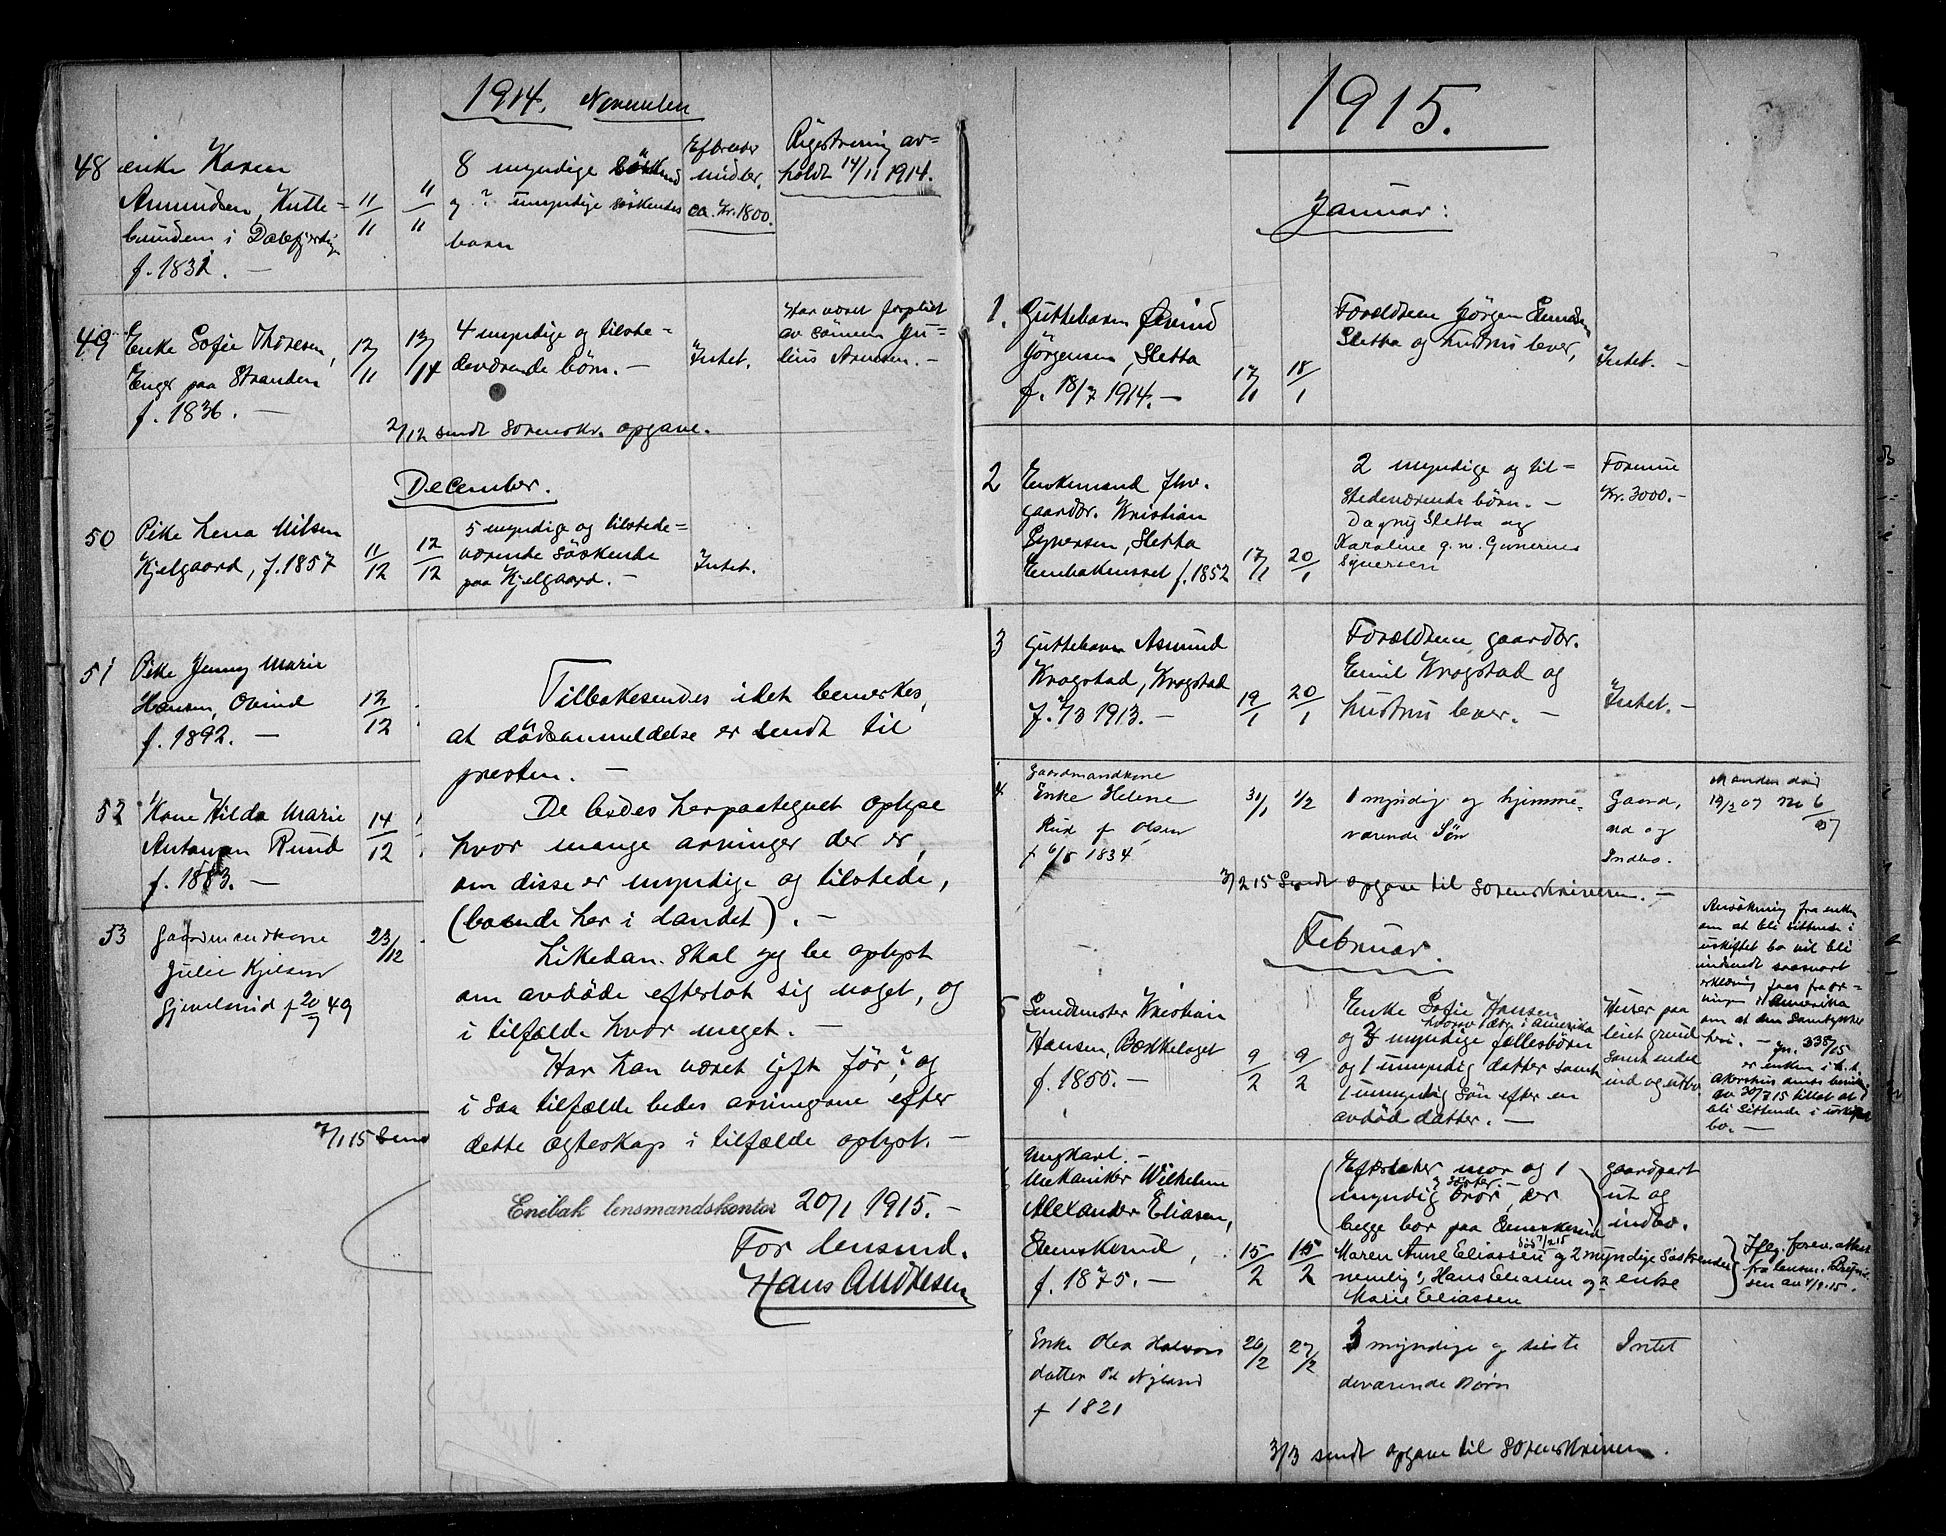 1914. November
48 enke Karen
Amundsen, Hytte-
bunden i Dalefjerding
f. 1831. —
11/11
11/11
8 myndige Söskend
og ? umyndige söskendes
barn
Efterlader
midler,
ca. Kr. 1800.
Registrering av-
holdt 14/11 1914.
49 Enke Sofie Thoresen,
Enger paa Stranden
f. 1836. —
12/11
13/11
4 myndige og tilste-
deværende börn. —
Intet.
Har været forpleiet
av sönnen Ju-
lius Arnesen. —
2/12 sendt sorenskr. opgave.
December.
50 Pike Lena Nilsen
Kjelgaard, f. 1857
11/12
12/12
5 myndig og tilstede-
værende söskende
paa Kjelgaard. —
Intet.
51 Pike Jenny Marie
Hansen, Ovind
f. 1892. —
12/12
52 Kone Hilda Marie
Antonsen Rund
f. 1883. —
14/12
53 Gaardmandkone
Julie Kjelsen
Gjevelsrud f 20/7 49
23/12
7/1 15 Send
Tilbakesendes idet bemerkes,
at dödsanmeldelse er sendt til
presten. —
De bedes herpaategnet oplyse
hvor mange arvinger der er,
om disse er myndige og tilstede,
(boende her i landet). —
Likedan skal jeg be oplyst
om avdöde efterlot sig noget, og
i tilfælde hvor meget. —
Har han været gift för?, og
i saa tilfælde bedes arvingene efter
dette egteskap i tilfælde oplyst. —
Enebak lensmandskontor 20/1 1915. —
For lensmd.
Hans Andresen
1915.
Januar:
1. Guttebarn Øivind
Jörgensen, Sletta
f. 18/7 1914. —
17/1
18/1
Forældrene Jørgen
Sletta og hustru lever,
Intet. —
2 Enkemand fhv.
gaardbr. Kristian
Syversen, Sletta
f. 1852
17/1
20/1
2 myndige og til-
stedeværende börn. —
Dagny Sletta og
Karoline g. m.
Syversen
Formue
Kr. 3000. —
3 Guttebarn Asmund
Krogstad, Krogstad
1913. —
19/1
20/1
Forældrene gaardbr.
Emil Krogstad og
hustru lever. —
Intet. —
4 Gaardmandkone
Enke Helene
Rud f Olsen
f 6/5 1834
31/1
1/2
1 myndig og hjemme-
værende Sön
Gaard,
og
Indbo.
Manden död
19/3 07 No 6/07
3/2 15 Sendt opgave til Sorenskriveren. —
Februar.
5 Kristian
Hansen, Bækkelaget
f. 1855. —
9/2
9/2
Enke Sofie Hansen
hvorav i Amerika
og 3 myndige fællesbörn
og 1 umyndig datter samt
1 umyndig Sön efter en
avdöd datter. —
Huser paa
leiet grund
samt endel
ind og utbo.
Ansökning fra enken
om at bli sittende i
uskiftet bo vil bli
indsendt saasnart
erklæring faaes fra
Amerika
om at den samtykker
heri. — Jn. 338/15
er enken i h. t.
Akershus amts
av 30/7 15 tillat at
bli Sittende i uskiftet
bo. —
Ungkarl. —
Mekaniker Wilhelm
Alexander Eliasen,
f. 1875. —
15/2
15/2
(Efterlater mor og 1
myndig bror, & söster. — der
begge bor paa
Maren Anne Eliassen og 2 myndige Söskende
nemlig: Hans Eliassen og enke
Marie Eliassen
gaardpart
ut og
indbo.
Ifølg. forev. attest
fra lensm.
av 4/9. 15.
Enke Olea Halvors
datter Nyland
f 1821
26/2
27/2
3 myndige og tilste
deværende Börn
Intet
3/3 sendt opgave til Sorenskriveren.